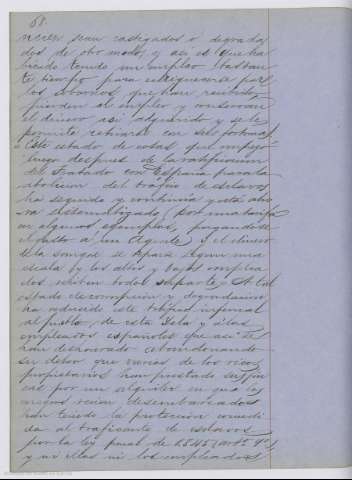 68.
sean castigados o degrada
dos de otro modo, y así es que ha
biendo tenido un empleo bastan
te tiempo para enriquecerse por
los sobornos que han recibido,
pierden el empleo y conservan
el dinero así adquirido y se le
permite retirarse con sus fortunas
Este estado de cosas que empezó
luego despues de la ratificacion
del tratado con España para la
abolicion del tráfico de esclavos
ha seguido y continúa y está aho
ra sistematizado
en algunos ejemplos, pagandose
a un Agente y el dinero
de la sangre se reparte segun una
escala y los altos y bajos emplea
dos reciben todos su parte. A tal
estado de corrupcion y degradacion
ha reducido este tráfico infernal
al pueblo de esta Isla y a los
empleados españoles que así se
han deshonrado abandonando
su deber que varios de los ricos
propietarios han prestado sus fin
cas por un alquiler en que los
negros recien desembarcados
han tenido la proteccion concedi
da al traficante de esclavos
por la ley penal de 1845 (art.º 9.º)
y ni ellos ni los empleados